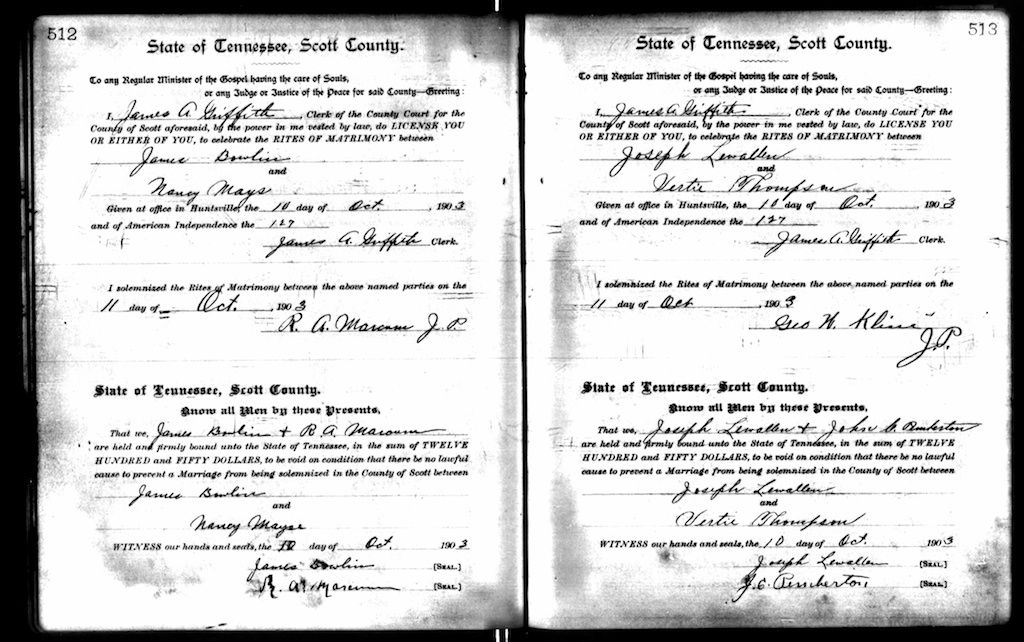 512
State of Tennessee, Scott County.
To any Regular Minister of the Gospel having the care of Souls,
or any Judge or Justice of the Peace for said County—Greeting:
I, James A Griffith, Clerk of the County Court for the
County of Scott aforesaid, by the power in me vested by law, do LICENSE YOU
OR EITHER OF YOU, to celebrate the RITES OF MATRIMONY between
James Bowlin
and
Nancy Mays
Given at office in Huntsville, the 10 day of Oct. , 1903
and of American Independence the 127
James A. Griffith Clerk.
I solemnized the Rites of Matrimony between the above named parties on the
11 day of Oct. , 1903
R. A. Marcum J. P.
State of Tennessee, Scott County.
Know all Men by these Presents,
That we, James Bowlin + R A Marcum
are held and firmly bound unto the State of Tennessee, in the sum of TWELVE
HUNDRED and FIFTY DOLLARS, to be void on condition that there be no lawful
cause to prevent a Marriage from being solemnized in the County of Scott between
James Bowlin
and
Nancy Mayse
WITNESS our hands and seals, the 10 day of Oct. 1903
James Bowlin [SEAL.]
R. A. Marcum [SEAL.]
513
State of Tennessee, Scott County.
To any Regular Minister of the Gospel having the care of Souls,
or any Judge or Justice of the Peace for said County—Greeting:
I, James A Griffith , Clerk of the County Court for the
County of Scott aforesaid, by the power in me vested by law, do LICENSE YOU
OR EITHER OF YOU, to celebrate the RITES OF MATRIMONY between
Joseph Lewallen
and
Vertie Thompson
Given at office in Huntsville, the 10 day of Oct. , 1903
and of American Independence the 127
James A. Griffith Clerk.
I solemnized the Rites of Matrimony between the above named parties on the
11 day of Oct , 1903
Geo W. Kline
J.P.
State of Tennessee, Scott County.
Know all Men by these Presents,
That we, Joseph Lewallen + John C Pemberton
are held and firmly bound unto the State of Tennessee, in the sum of TWELVE
HUNDRED and FIFTY DOLLARS, to be void on condition that there be no lawful
cause to prevent a Marriage from being solemnized in the County of Scott between
Joseph Lewallen
and
Vertie Thompson
WITNESS our hands and seals, the 10 day of Oct. 1903
Joseph Lewallen [SEAL.]
J. C. Pemberton, [SEAL.]